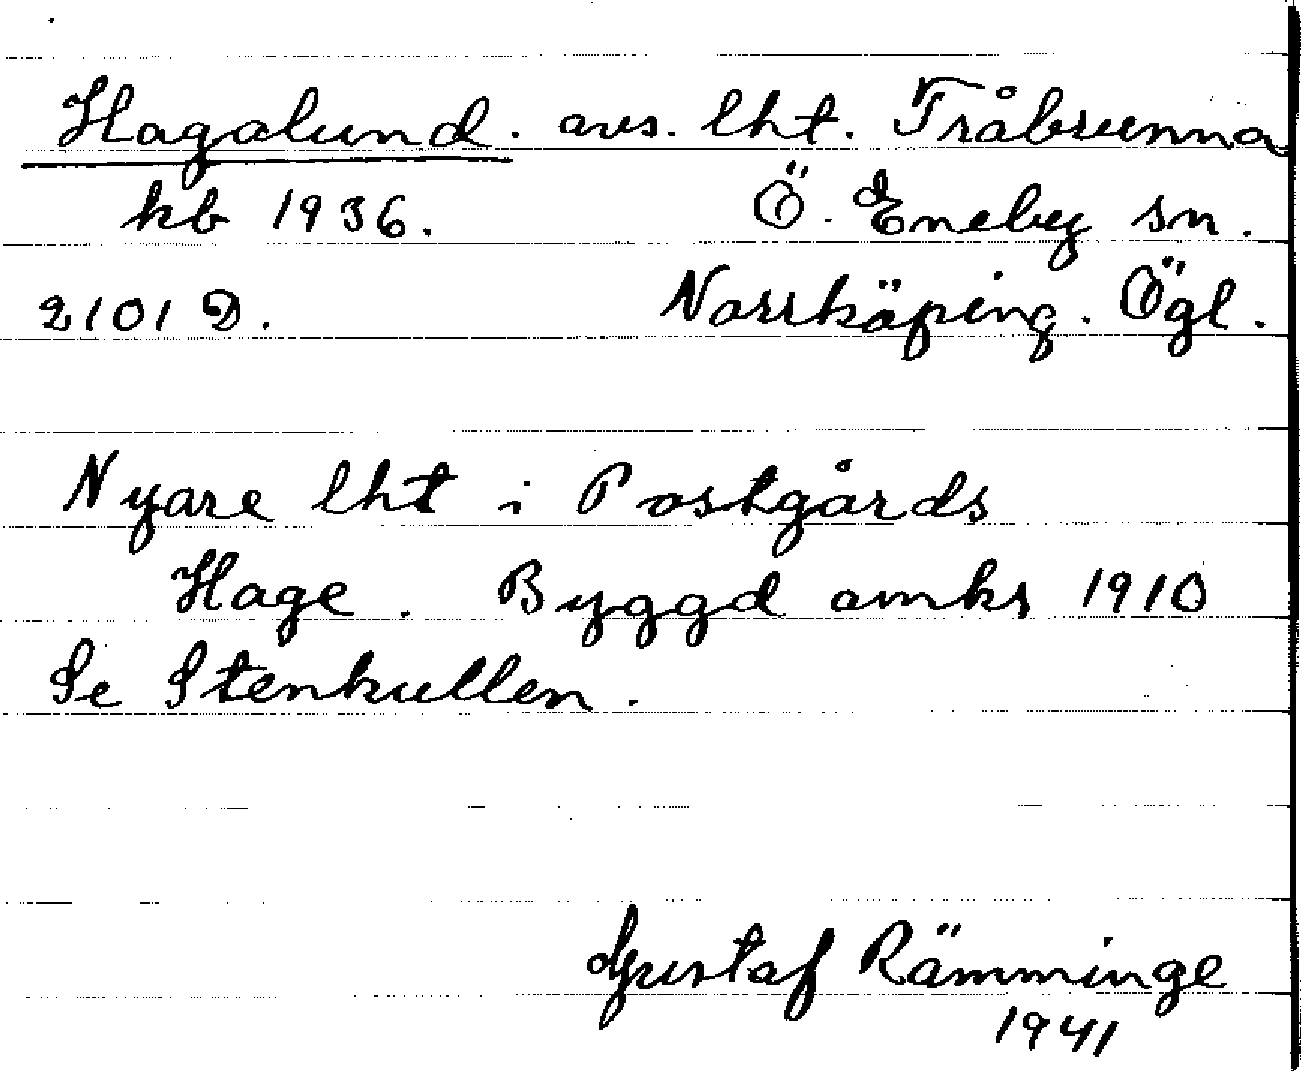 Hagalund. avs. lht. Tråbrunna
kb 1936. Ö. Eneby sn.
2101 D. Norrköping. Ögl.
Nyare lht i Postgårds
Hage. Byggd omkr 1910
Se Stenkullen.
Gustaf Rämminge
1941